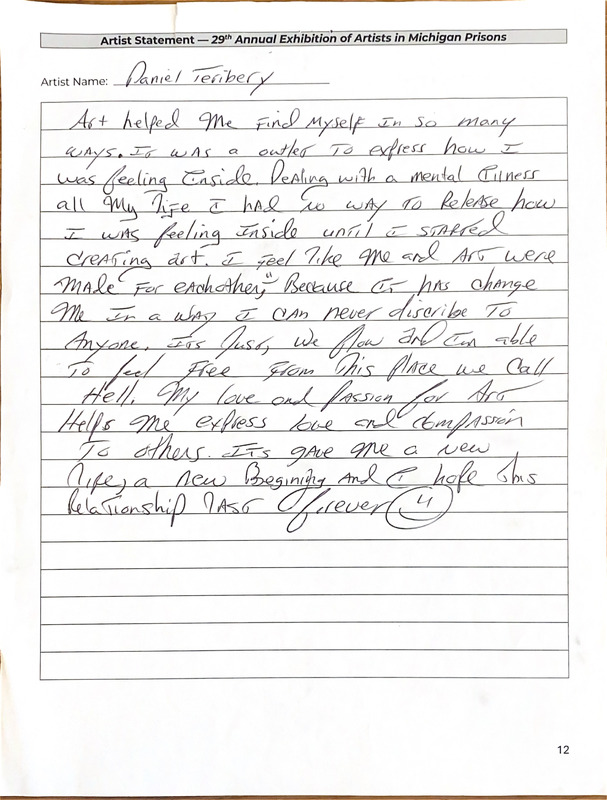 Artist Statement — 29th Annual Exhibition of Artists in Michigan Prisons
Artist Name: Daniel Teribery
Art helped Me Find Myself In So many
ways. It was a outlet To express how I
was feeling Inside. Dealing with a mental Illness
all My Life I had no way To Release how
I was feeling Inside until I started
Creating art. I Feel like Me and Art were
Made "For eachother," Because It has change
Me In a way I can never discribe To
Anyone. Its Just, we flow and I'm able
To feel Free From This place we Call
Hell. My love and passion for Art
Helps Me express love and compassion
To others. It's gave Me a new
life, a new Beginning And I hope this
Relationship last forever
12